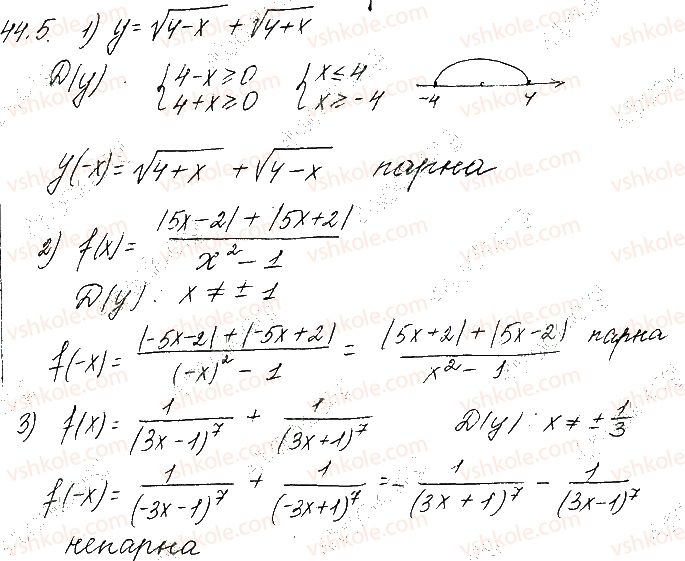 44.5. 1) y = √(4-x) + √(4+x)
D(y). { 4-x ≥ 0 { x ≤ 4
4+x ≥ 0 x ≥ -4 -4 4
y(-x) = √(4+x) + √(4-x) парна
2) f(x) = (|5x-2| + |5x+2|)/(x² - 1)
D(y). x ≠ ± 1
f(-x) = (|-5x-2| + |-5x+2|)/((-x)² - 1) = (|5x+2| + |5x-2|)/(x² - 1) парна
3) f(x) = 1/(3x-1)⁷ + 1/(3x+1)⁷ D(y): x ≠ ± 1/3
f(-x) = 1/(-3x-1)⁷ + 1/(-3x+1)⁷ = - 1/(3x+1)⁷ - 1/(3x-1)⁷
непарна
vshkole.com